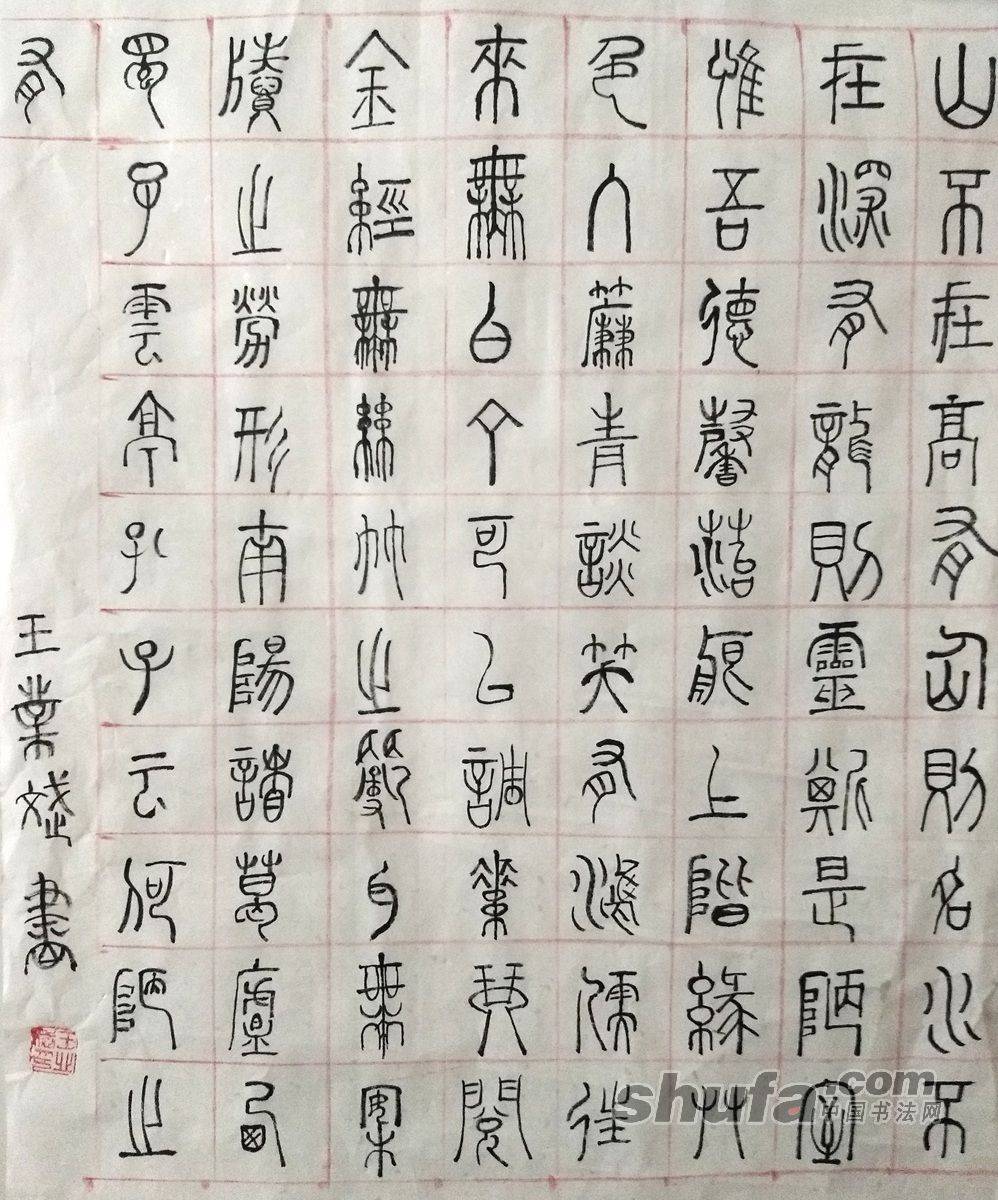 山不在高有仙則名水不
在深有龍則靈斯是陋室
惟吾德馨菭痕上階綠艸
色入簾青談笑有鴻儒往
來無白丁可以調素琴閱
金經無絲竹之亂耳無案
牘之勞形南陽諸葛廬西
蜀子雲亭孔子云何陋之
有
王業書
shufa.com
中国书法网